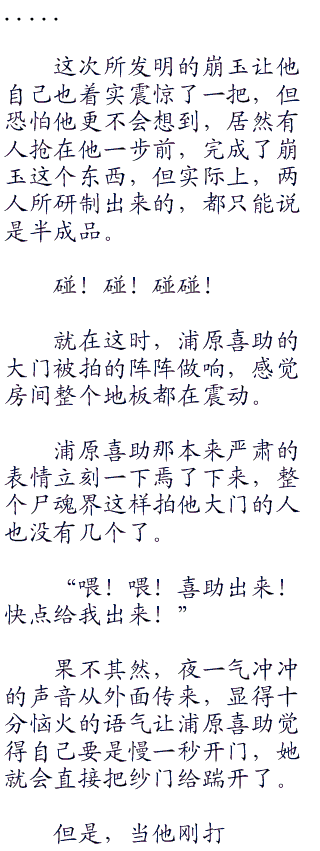 .....
这次所发明的崩玉让他
自己也着实震惊了一把，但
恐怕他更不会想到，居然有
人抢在他一步前，完成了崩
玉这个东西，但实际上，两
人所研制出来的，都只能说
是半成品。
碰！碰！碰碰！
就在这时，浦原喜助的
大门被拍的阵阵做响，感觉
房间整个地板都在震动。
浦原喜助那本来严肃的
表情立刻一下焉了下来，整
个尸魂界这样拍他大门的人
也没有几个了。
“喂！喂！喜助出来！
快点给我出来！”
果不其然，夜一气冲冲
的声音从外面传来，显得十
分恼火的语气让浦原喜助觉
得自己要是慢一秒开门，她
就会直接把纱门给踹开了。
但是，当他刚打